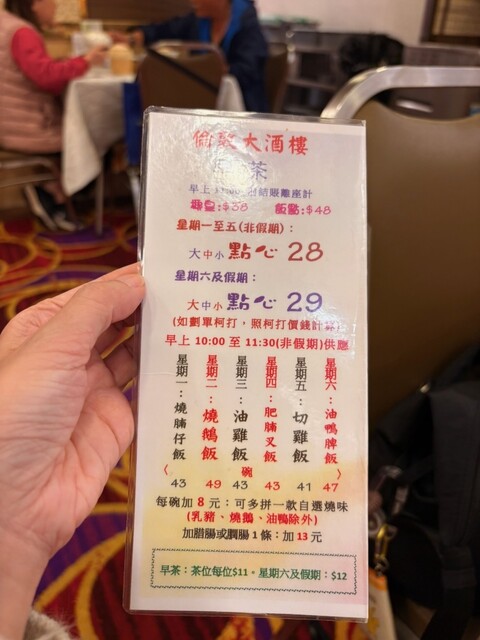 大酒樓
茶
早上 11:00 結賬離座計
$38 飯點:$48
星期一至五(非假期):
大中小點心 28
星期六及假期:
大中小點心 29
(如劃單柯打,照柯打價錢計算)
早上 10:00 至 11:30(非假期)供應
星期一:燒腩仔飯
星期二:燒鵝飯
星期三:油雞飯
星期四:肥腩叉飯
星期五:切雞飯
星期六:油鴨脾飯
〈 碗 〉
43 49 43 43 41 47
每碗加 8 元:可多拼一款自選燒味
(乳豬、燒鵝、油鴨除外)
加腊腸或膶腸 1 條:加 13 元
早茶:茶位每位$11。星期六及假期:$12